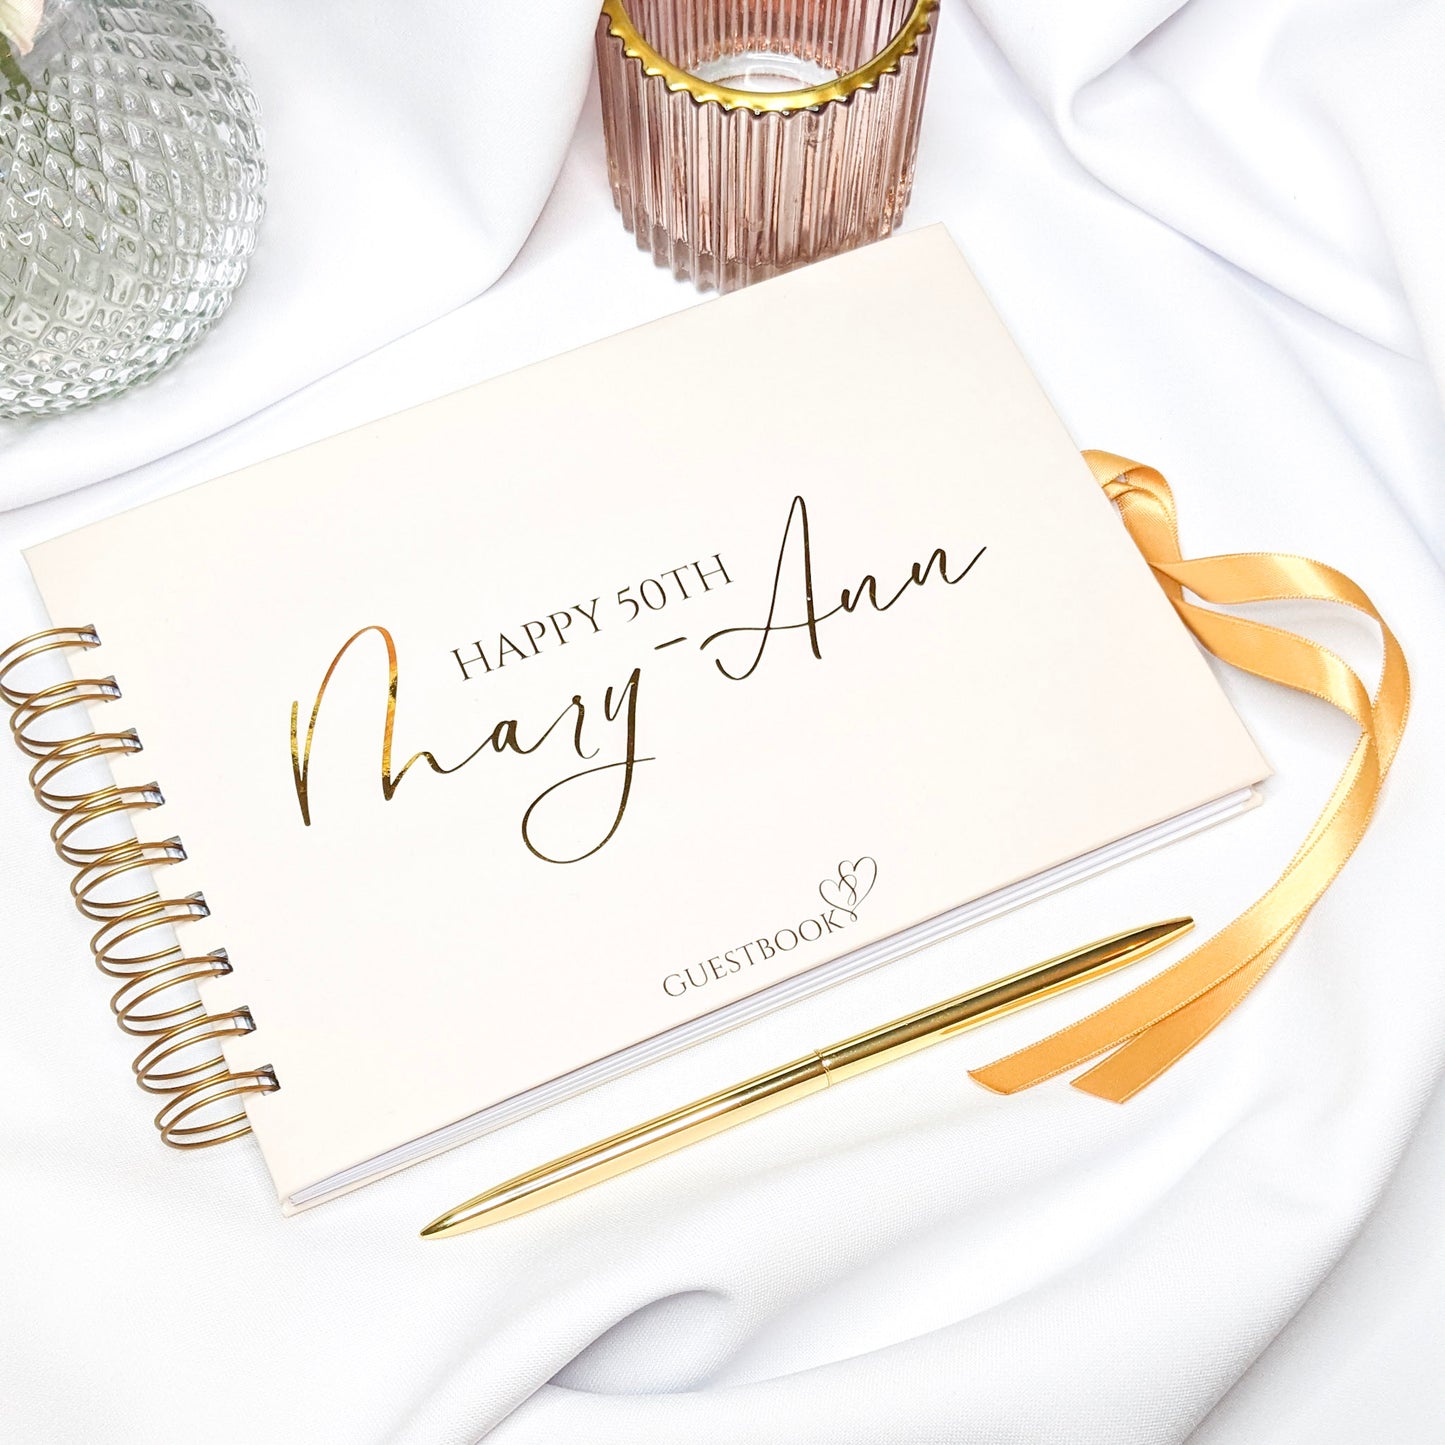 HAPPY 50TH
Mary-Ann
GUESTBOOK